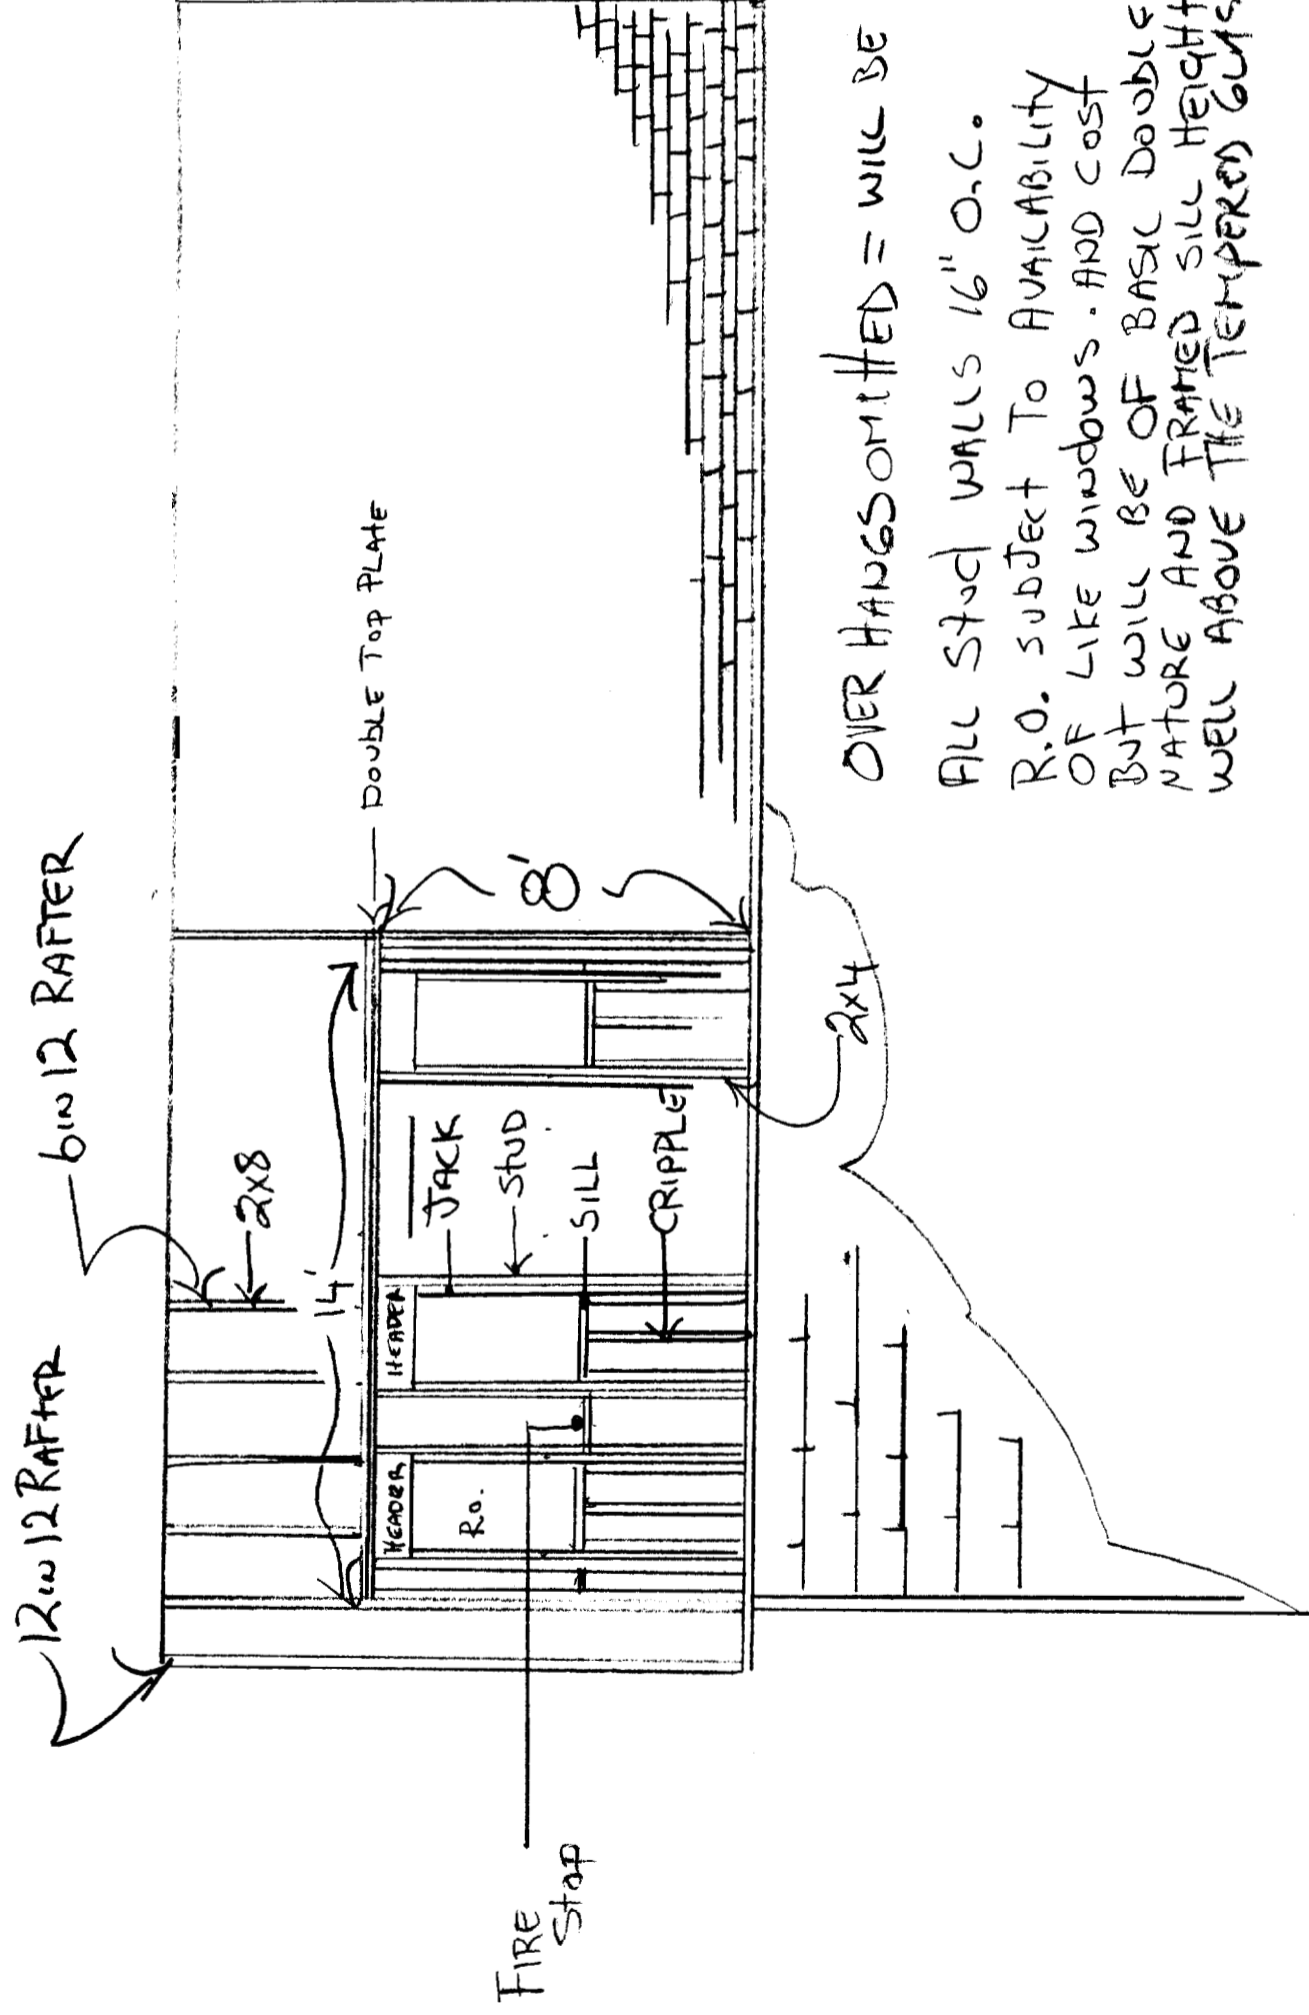 12 IN 12 RAFTER
6 IN 12 RAFTER
2x8
14'
DOUBLE TOP PLATE
HEADER
HEADER
R.O.
JACK
STUD
SILL
CRIPPLE
8'
FIRE
STOP
2x4
OVER HANGS OMITTED = WILL BE
ALL STUD WALLS 16" O.C.
R.O. SUBJECT TO AVAILABILITY
OF LIKE WINDOWS. AND COST
BUT WILL BE OF BASIC DOUBLE
NATURE AND FRAMED SILL HEIGHT
WELL ABOVE THE TEMPERED